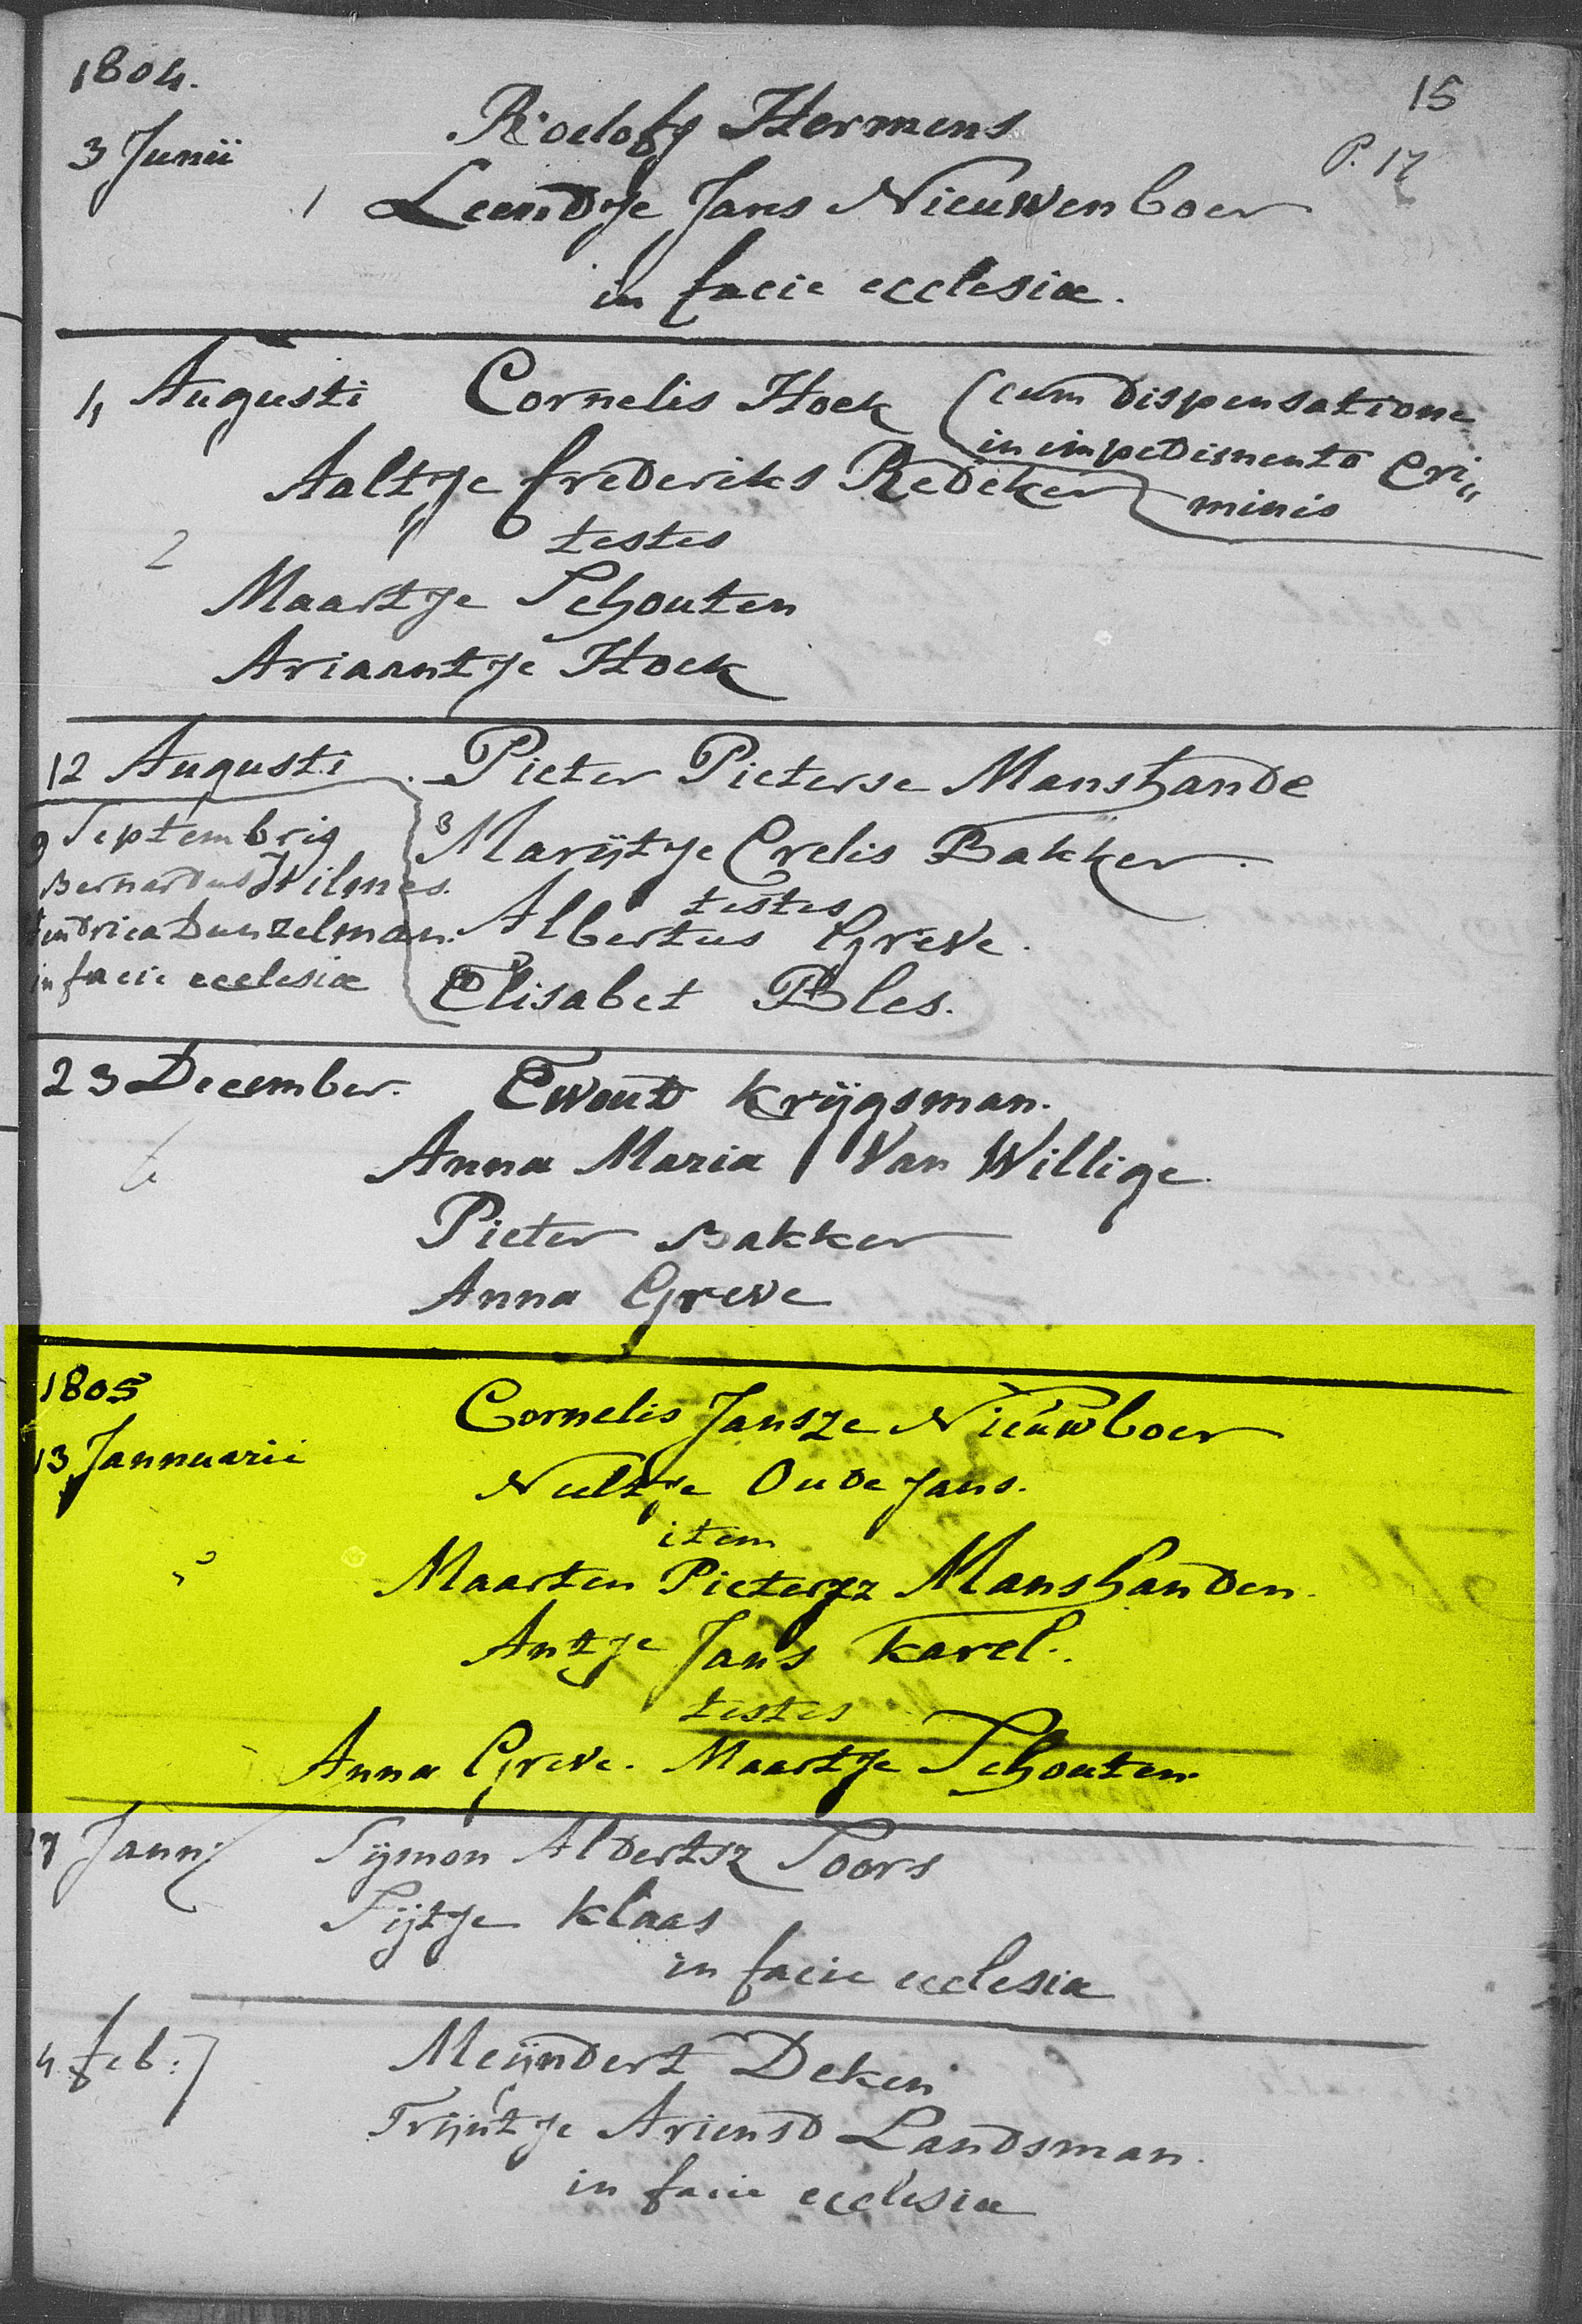 1804.
15
3 Junii
Roelofs Hermens
P. 17
1 Leendtje Jans Nieuwenboer
in facie ecclesiæ.
Augusti Cornelis Hoek (cum dispensatione
in impedimento Cri„
Aaltje frederiks Redeker minis
testes
2
Maartje Schouten
Ariaantje Hoek
12 Augusti Pieter Pieterse Manshande
3 Marijtje Crelis Bakker.
testes
Albertus Greve.
Elisabet Bles.
9 Septembris
Bernardus Hilmes.
Hendrica Dunzelman.
in facie ecclesiæ
23 December. Ewout Krijgsman.
Anna Maria Van Willige.
Pieter Bakker
Anna Greve
1805
13 Jannuarii
Cornelis Jansze Nieuwboer
Neeltje Oudejans.
item
5
Maarten Pietersz Manshanden.
Antje Jans Karel.
testes
Anna Greve. Maartje Schouten.
Jann: Sijmon Aldertsz Toors
Sijtje Klaas
in facie ecclesiæ
4 feb: Meijndert Deken
Trijntje Ariensd Landsman.
in facie ecclesiæ